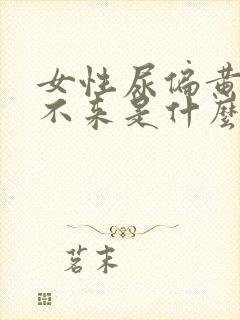 女性尿偏黄
不来是什麽
茗末